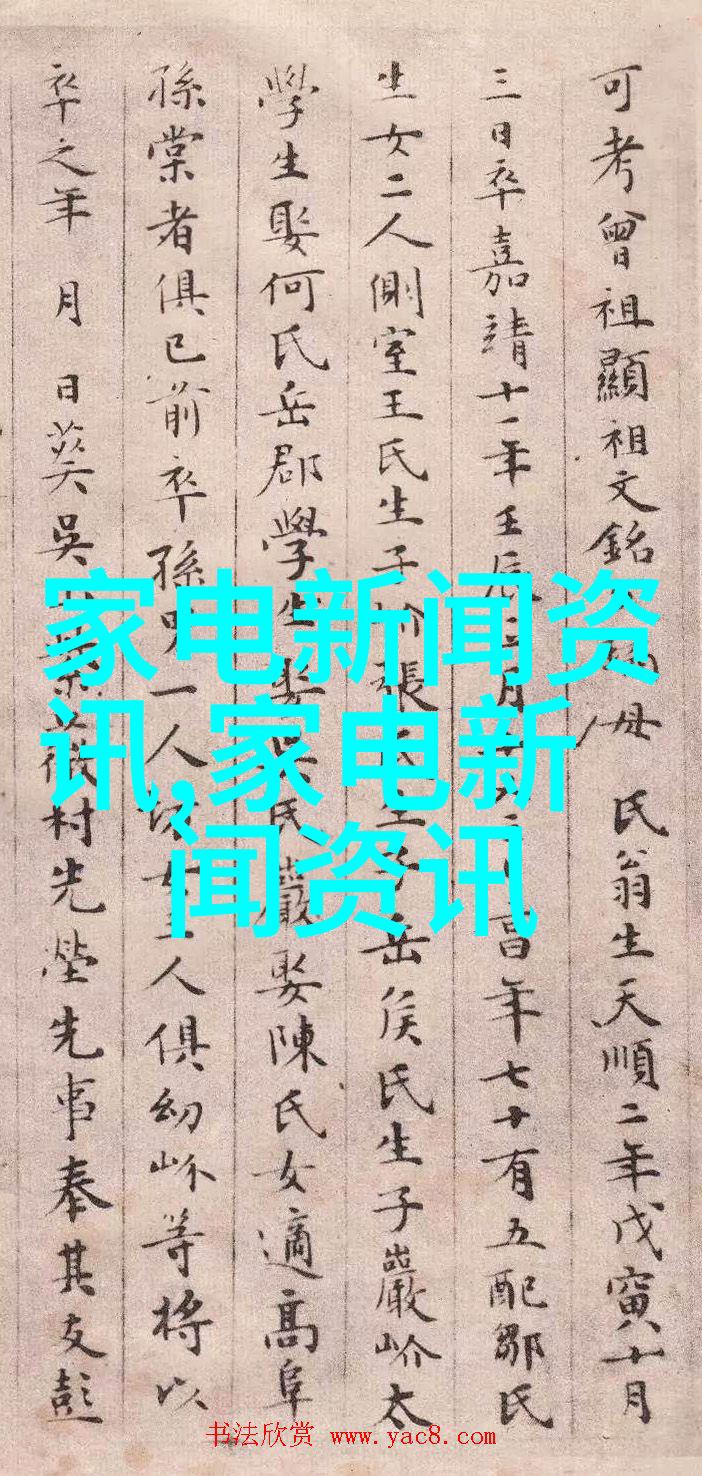 可考曾祖顯祖文銘母氏翁生天順二年戊寅十月
三日卒嘉靖十一年壬辰月年七十有五配鄒氏
生女二人側室王氏生子張岳侯氏生子巖岕太
學生娶何氏岳郡學生娶吳氏巖娶陳氏女適高阜
孫棠者俱已前卒孫男一人女二人俱幼岕等將以
卒之年 月 日葬吳村先塋先事奉其友彭
家电新闻资
讯,家电新
闻资讯
书法欣赏 www.yac8.com